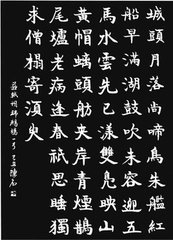 城頭月落尚啼烏朱艦紅
船早滿湖鼓吹未容迎五
馬水雲先已漾雙鳧映山
黃帽螭頭舫夾岸青煙鵲
尾爐老病逢春祇思睡獨
求僧榻寄須臾